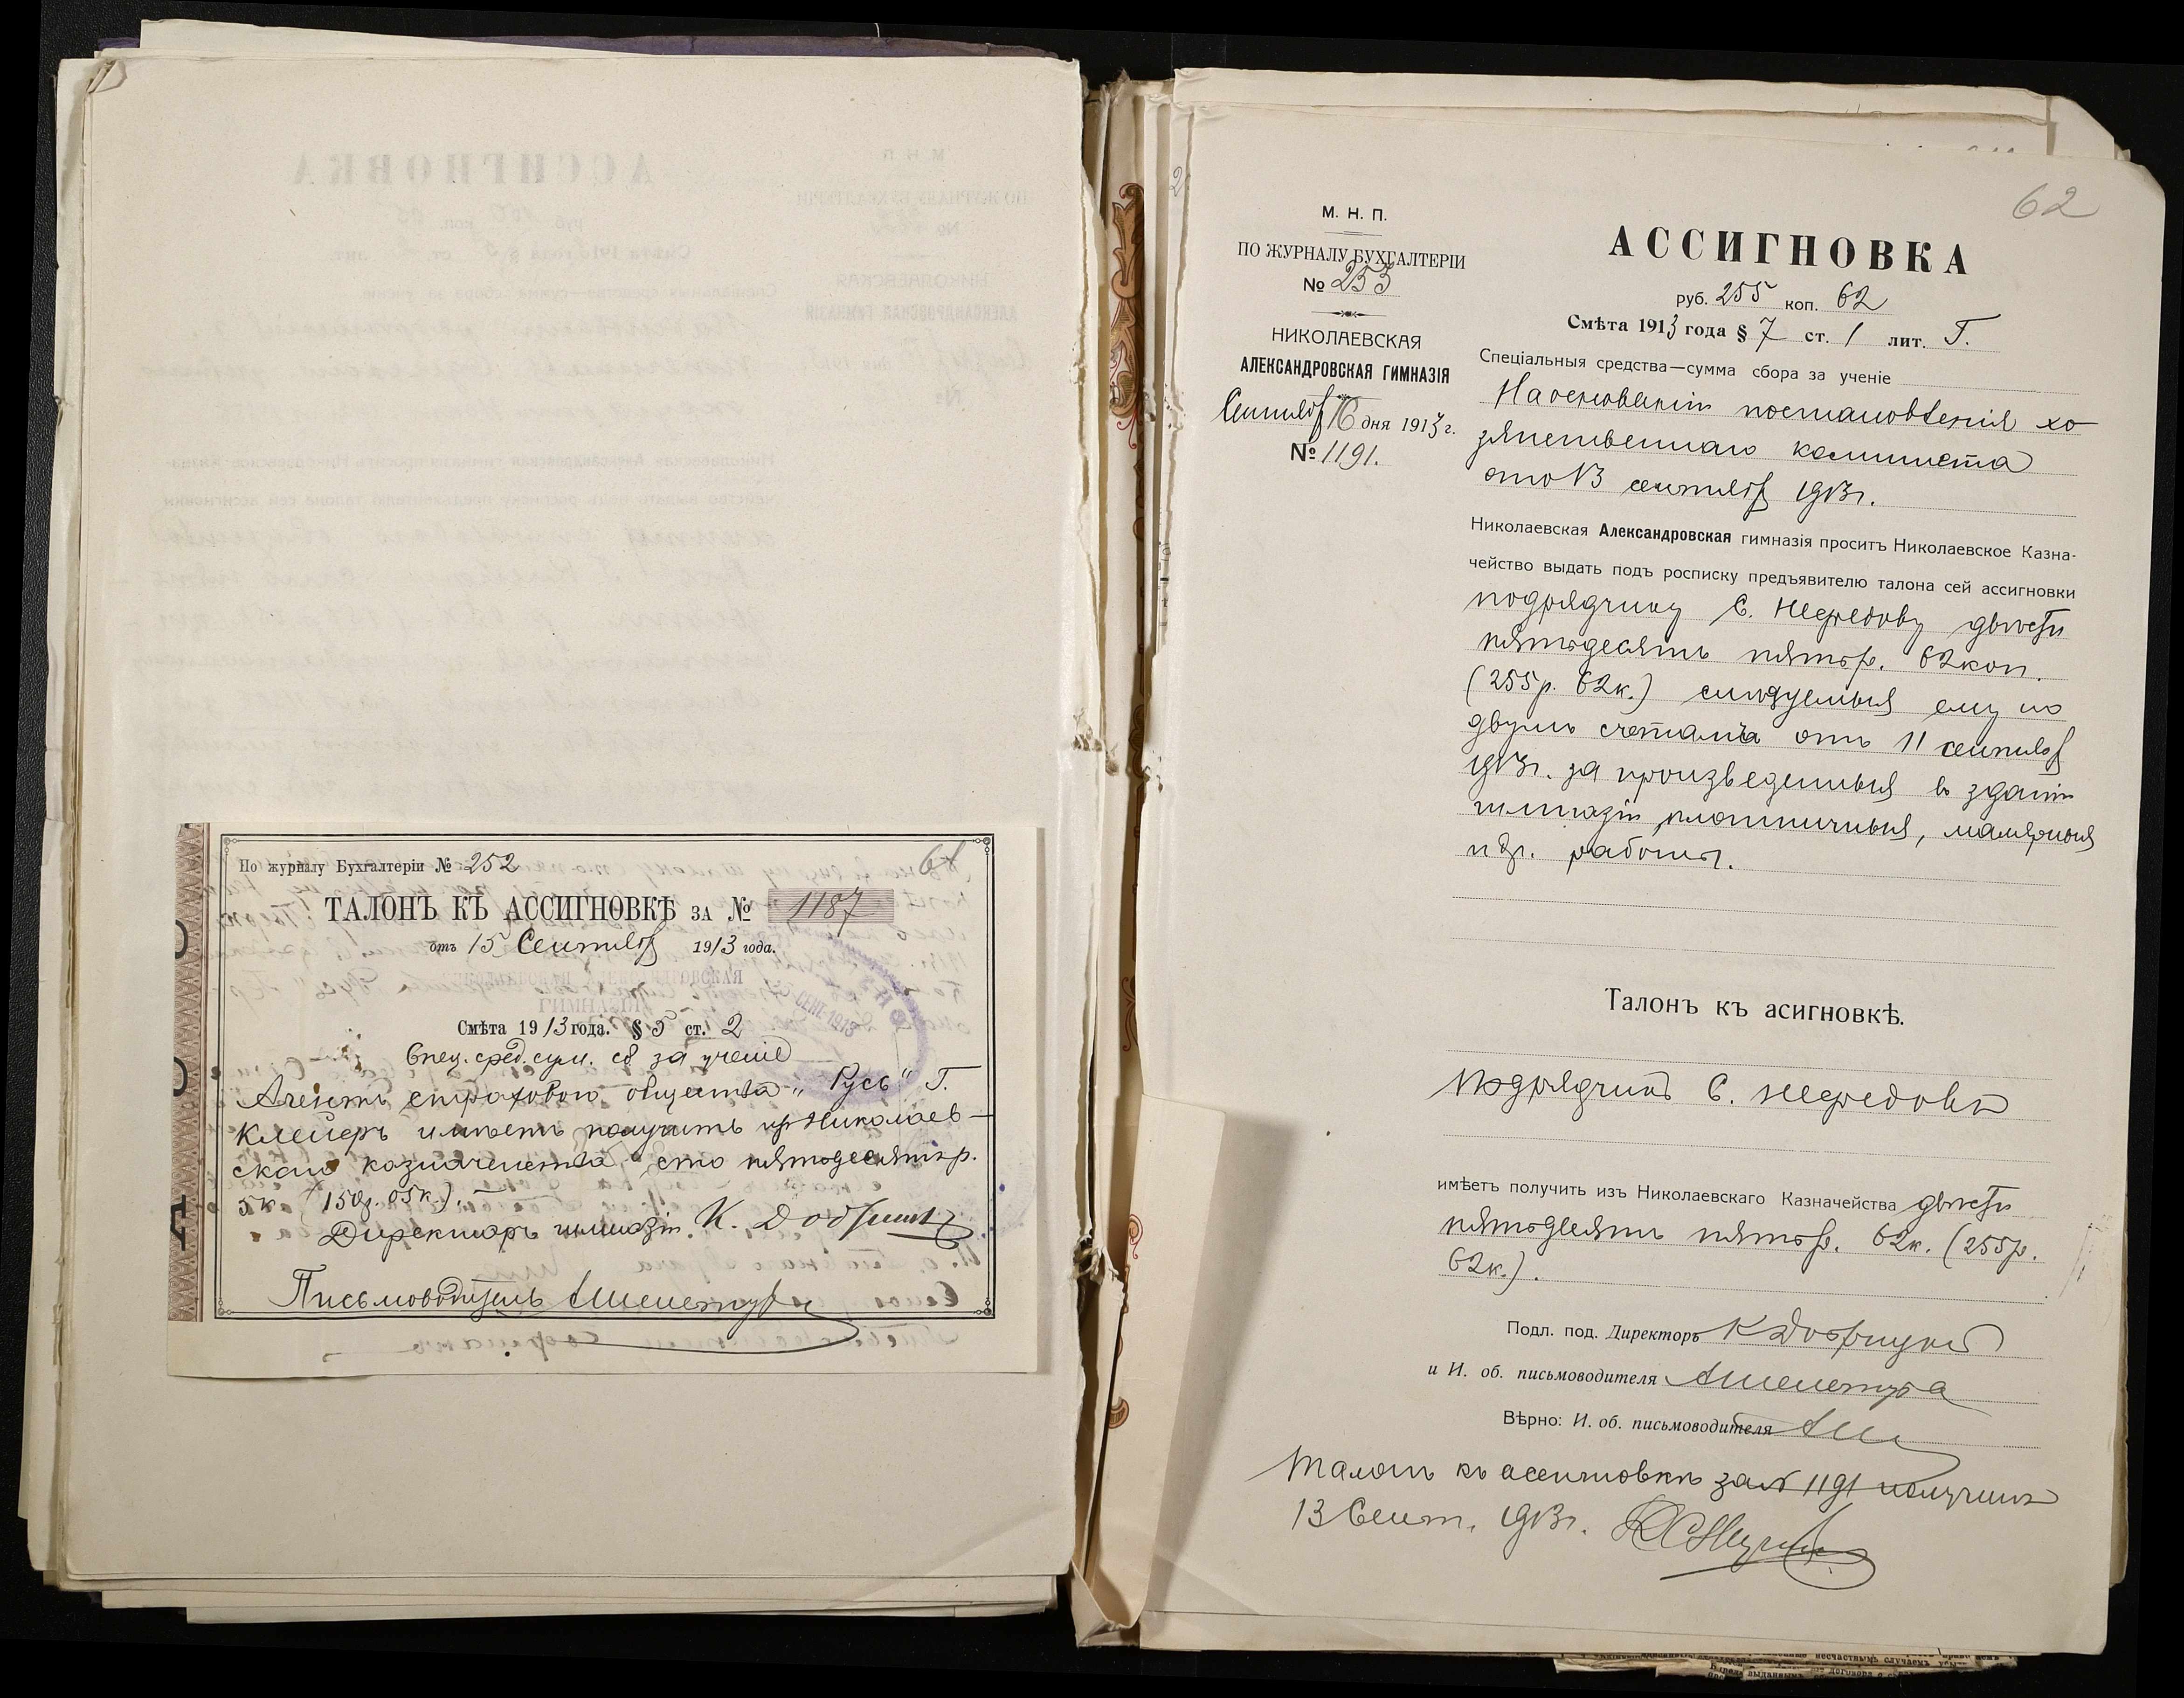 По журналу Бухгалтеріи № 252
61
ТАЛОНЪ КЪ АССИГНОВКѢ ЗА № 1187
отъ 15 Сентября 1913 года.
НИКОЛАЕВСКАЯ АЛЕКСАНДРОВСКАЯ
ГИМНАЗІЯ
СЕНТ 1913
Смѣта 1913 года. § 5 ст. 2
Спец. сред. сум. сб. за ученіе
Агентъ страхового общества „Русь" Г.
Клейеръ имѣетъ получить из Николаев-
скаго казначейства сто пятьдесятъ р.
5 к (150р. 05к.).
Директоръ гимназіи К.
Письмоводитель
62
М. Н. П.
ПО ЖУРНАЛУ БУХГАЛТЕРІИ
№ 253
НИКОЛАЕВСКАЯ
АЛЕКСАНДРОВСКАЯ ГИМНАЗІЯ
Сентября 16 дня 1913 г.
№ 1191.
АССИГНОВКА
руб. 255 коп. 62
Смѣта 1913 года § 7 ст. 1 лит. Г.
Спеціальныя средства—сумма сбора за ученіе
На основаніи постановленія хо
зяйственнаго комитета
отъ 13 сентября 1913г.
Николаевская Александровская гимназія проситъ Николаевское Казна-
чейство выдать подъ росписку предъявителю талона сей ассигновки
подрядчику С. Нефедову двѣсти
пятьдесятъ пять р. 62 коп.
(255р. 62к.) слѣдуемыя ему по
двумъ счетамъ отъ 11 сентября
1913г. за произведенныя въ зданіи
гимназіи плотничныя, малярныя
и др. работы.
Талонъ къ асигновкѣ.
Подрядчикъ С. Нефедовъ
имѣетъ получить изъ Николаевскаго Казначейства двѣсти
пятьдесятъ пять р. 62к. (255р.
62к.).
Подл. под. Директоръ К
и И. об. письмоводителя
Вѣрно: И. об. письмоводителя
Талонъ къ ассигновкѣ за № 1191 получилъ
13 Сент. 1913г.